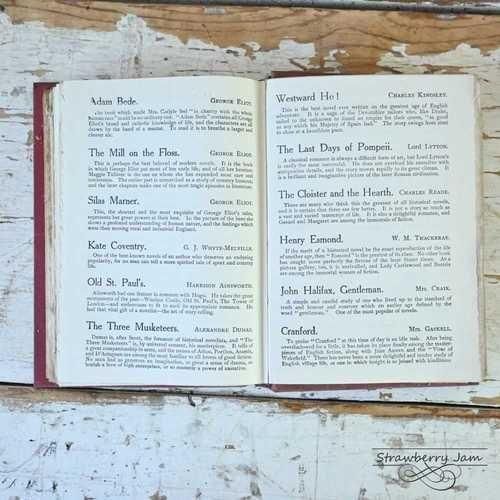 Adam Bede. GEORGE ELIOT.
The book which made Mrs. Carlyle feel "in charity with the whole
human race" could be no ordinary one. "Adam Bede" contains all George
Eliot's broad and catholic knowledge of life, and the characters are all
drawn by the hand of a master. To read it is to breathe a larger and
classic air.
The Mill on the Floss. GEORGE ELIOT.
This is perhaps the best beloved of modern novels. It is the book
in which George Eliot put most of her early life, and of all her heroines
Maggie Tulliver is the one on whom she has expended most care and
tenderness. The earlier part is unmatched as a study of human nature,
and the later chapters make one of the most tragic episodes in literature.
Silas Marner. GEORGE ELIOT.
This, the shortest and the most exquisite of George Eliot's tales,
represents her great powers at their best. In the picture of the hero she
shows a profound understanding of human nature, and the feelings which
were then moving rural and industrial England.
Kate Coventry. G. J. WHYTE-MELVILLE.
One of the best-known novels of an author who deserves an enduring
popularity, for no man can tell a more spirited tale of sport and country
life.
Old St. Paul's. HARRISON AINSWORTH.
Ainsworth had one feature in common with Hugo. He takes the great
monuments of the past—Windsor Castle, Old St. Paul's, The Tower of
London—and endeavours to fit to each its appropriate romance. He
had that vital gift of a novelist—the art of story telling.
The Three Musketeers. ALEXANDRE DUMAS.
Dumas is, after Scott, the foremost of historical novelists, and "The
Three Musketeers" is, by universal consent, his masterpiece. It tells of
a great companionship in arms, and the names of Athos, Porthos, Aramis,
and D'Artagnan are among the most familiar to all lovers of good fiction.
No man had so generous an imagination, so great a sense of drama, or
breathes a love of high enterprise, or so romantic a power over romance.
Westward Ho! CHARLES KINGSLEY.
This is the best novel ever written on the greatest age of English
adventure. It is a saga of the Devonshire sailors who, like Drake,
sailed to the unknown to found an empire for their queen, "as good
as any which his Majesty of Spain had." The story swings from start
to close at a breathless pace.
The Last Days of Pompeii. LORD LYTTON.
A classical romance is always a difficult form of art, but Lord Lytton's
is easily the most successful. He does not overload his narrative with
antiquarian details, and the story moves rapidly to its great climax. It
is a brilliant and imaginative picture of the later Roman Empire.
The Cloister and the Hearth. CHARLES READE.
There are many who think this the greatest of all historical novels,
and it is certain that there are few better. It is not a story so much as
a vast and varied transcript of life. It is also a delightful romance, and
Gerard and Margaret are among the immortals of fiction.
Henry Esmond. W. M. THACKERAY.
If the merit of a historical novel be the exact reproduction of the life
of another age, then "Esmond" is the greatest of its class. No other book
has caught more perfectly the flavour of the great Queen Anne. As a
picture gallery, too, it is unrivalled, and Lady Castlewood and Beatrix
are among the immortal women of fiction.
John Halifax, Gentleman. MRS. CRAIK.
A simple and candid study of one who lived up to the standard of
truth and honour and courtesy which an earlier age defined by the
word "gentleman." One of the most popular of novels.
Cranford. MRS. GASKELL.
To praise "Cranford" at this time of day is an idle task. After being
overshadowed for a little, it has taken its place finally among the master-
pieces of English fiction, along with Jane Austen and the "Vicar of
Wakefield." There has never been a more delightful and tender study of
English village life, or one in which insight is so joined with kindliness
Strawberry Jam